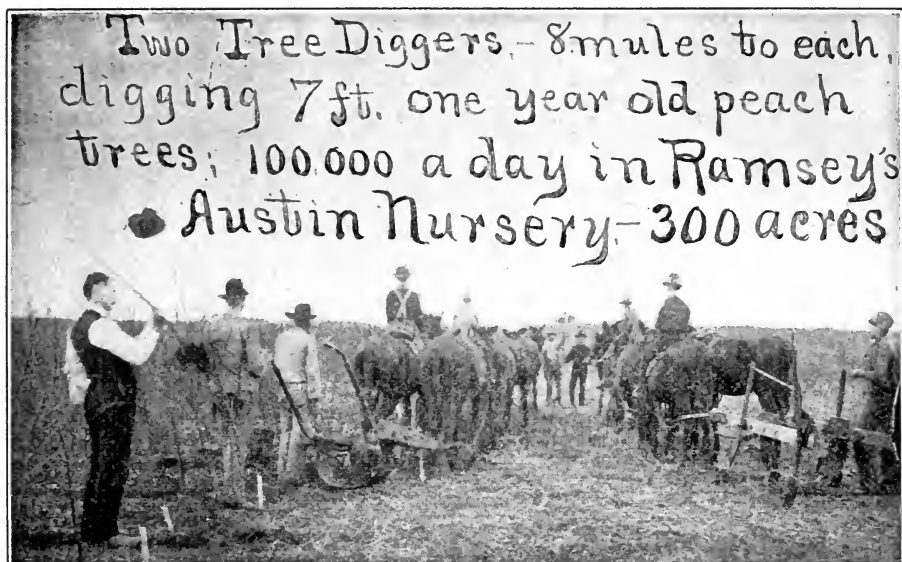 Two Tree Diggers,- 8 mules to each,
digging 7 ft. one year old peach
trees; 100.000 a day in Ramsey's
Austin Nursery.- 300 acres